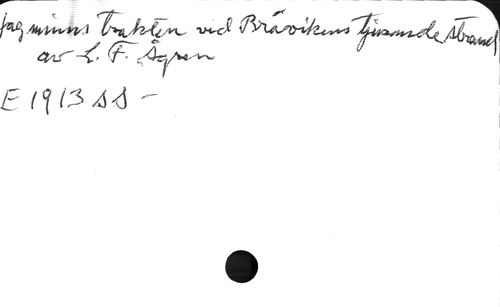 Jag minns trakten vid Bråvikens tjusande strand
av L. F. Ågren
E 1913 SS -